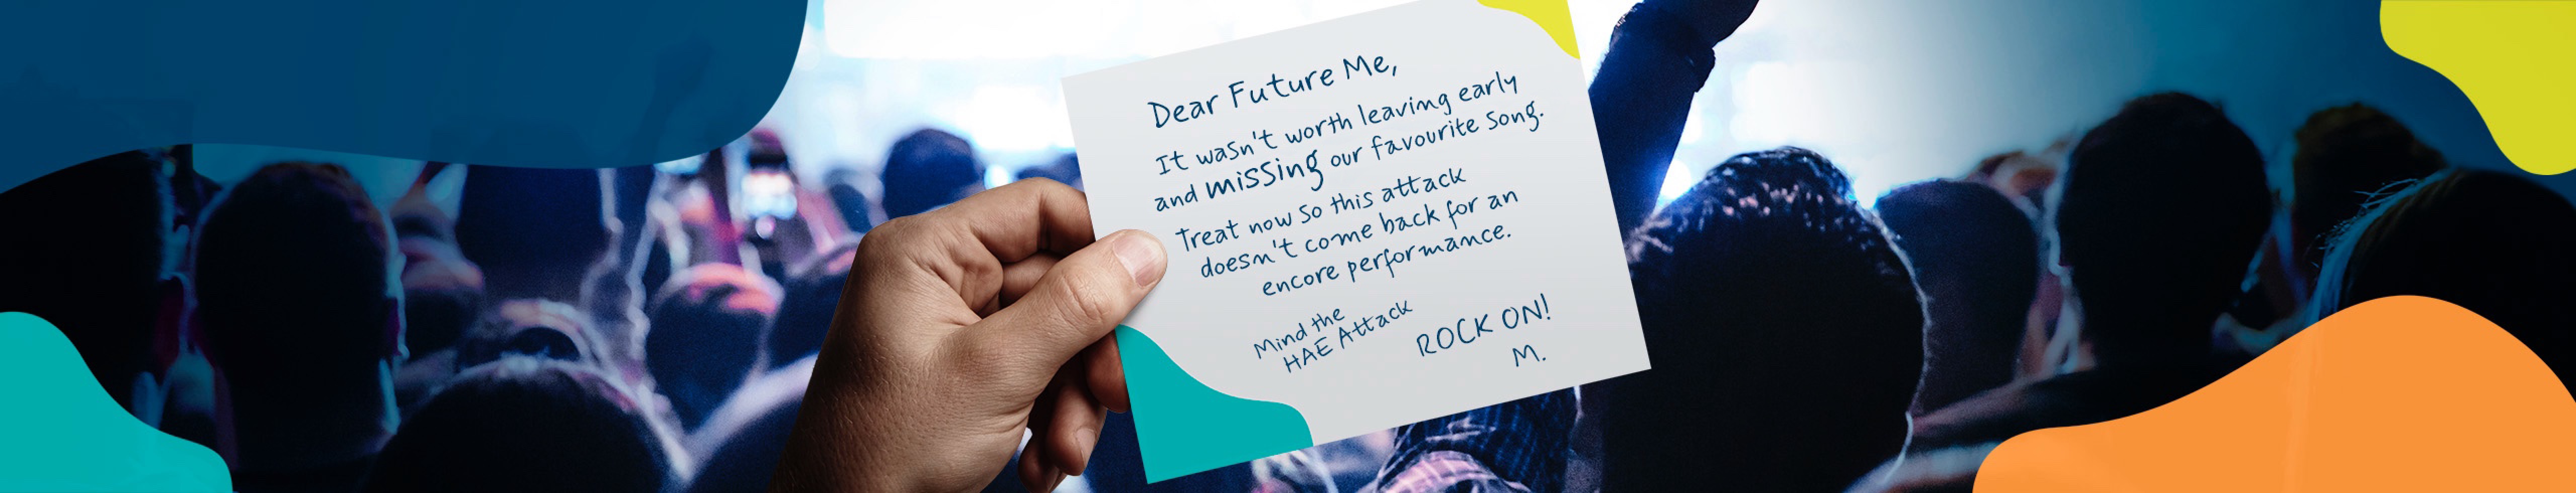 Dear Future Me,
It wasn't worth leaving early
and missing our favourite song.
Treat now so this attack
doesn't come back for an
encore performance.
Mind the
HAE Attack
ROCK ON!
M.